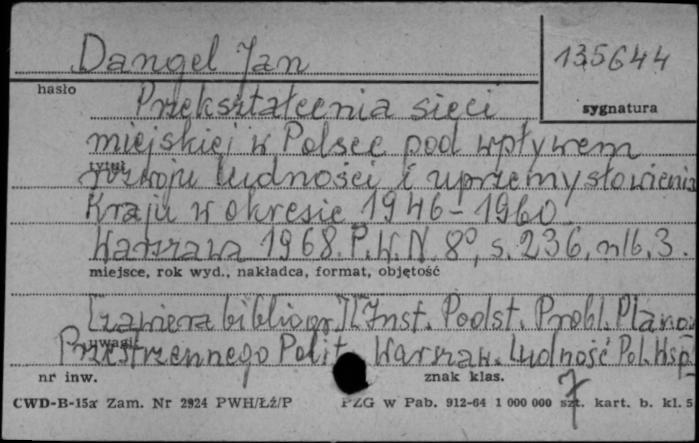 Dangel Jan
135644
hasło
sygnatura
Przekształcenia sieci
miejskiej w Polsce pod wpływem
tytuł
rozwoju ludności i uprzemysłowienia
Kraju w okresie 1946-1960
Warszawa 1968. P.W.N. 8°, s. 236, nlb. 3.
miejsce, rok wyd., nakładca, format, objętość
[zawiera bibliogr.] [Inst. Podst. Probl. Planow.
uwagi
Przestrzennego Polit. Warszaw. Ludność Pol. Wsp.
nr inw.
znak klas.
7
CWD-B-15a Zam. Nr 2924 PWH/Łź/P PZG w Pab. 912-64 1 000 000 szt. kart. b. kl. 5